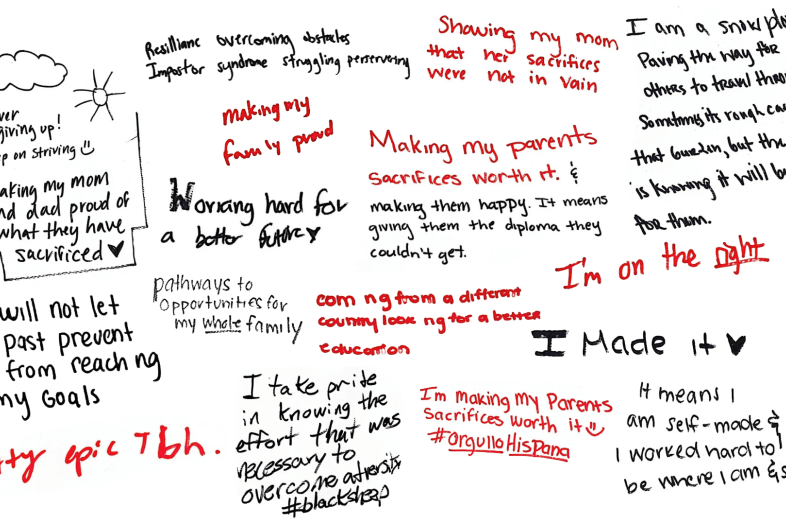 Resillianc overcoming obstacles
Impostor syndrome struggling perservering
Showing my mom
that her sacrifices
were not in vain
I am a snow plo
Paving the way for
others to travel throu
Sometimes its rough car
that burden, but the
is knowing it will b
for them.
ver
giving up!
p on striving
aking my mom
nd dad proud of
what they have
sacrificed
making my
family proud
Making my parents
sacrifices worth it. &
making them happy. It means
giving them the diploma they
couldn't get.
Working hard for
a better future
I'm on the right
pathways to
opportunities for
my whole family
com ng from a different
country look ng for a better
education
I Made it
will not let
past prevent
from reach ng
my Goals
tty epic Tbh.
I take pride
in knowing the
effort that was
necessary to
overcome adversity
#blacksheep
I'm making My Parents
Sacrifices worth it
#orgulloHispana
It means I
am self-made &
I worked hard to
be where I am & s